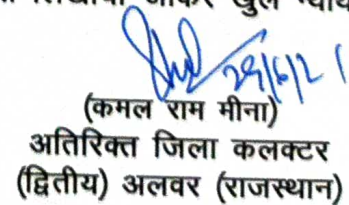 लिखाया जाकर खुले
29/6/21
(कमल राम मीना)
अतिरिक्त जिला कलक्टर
(द्वितीय) अलवर (राजस्थान)